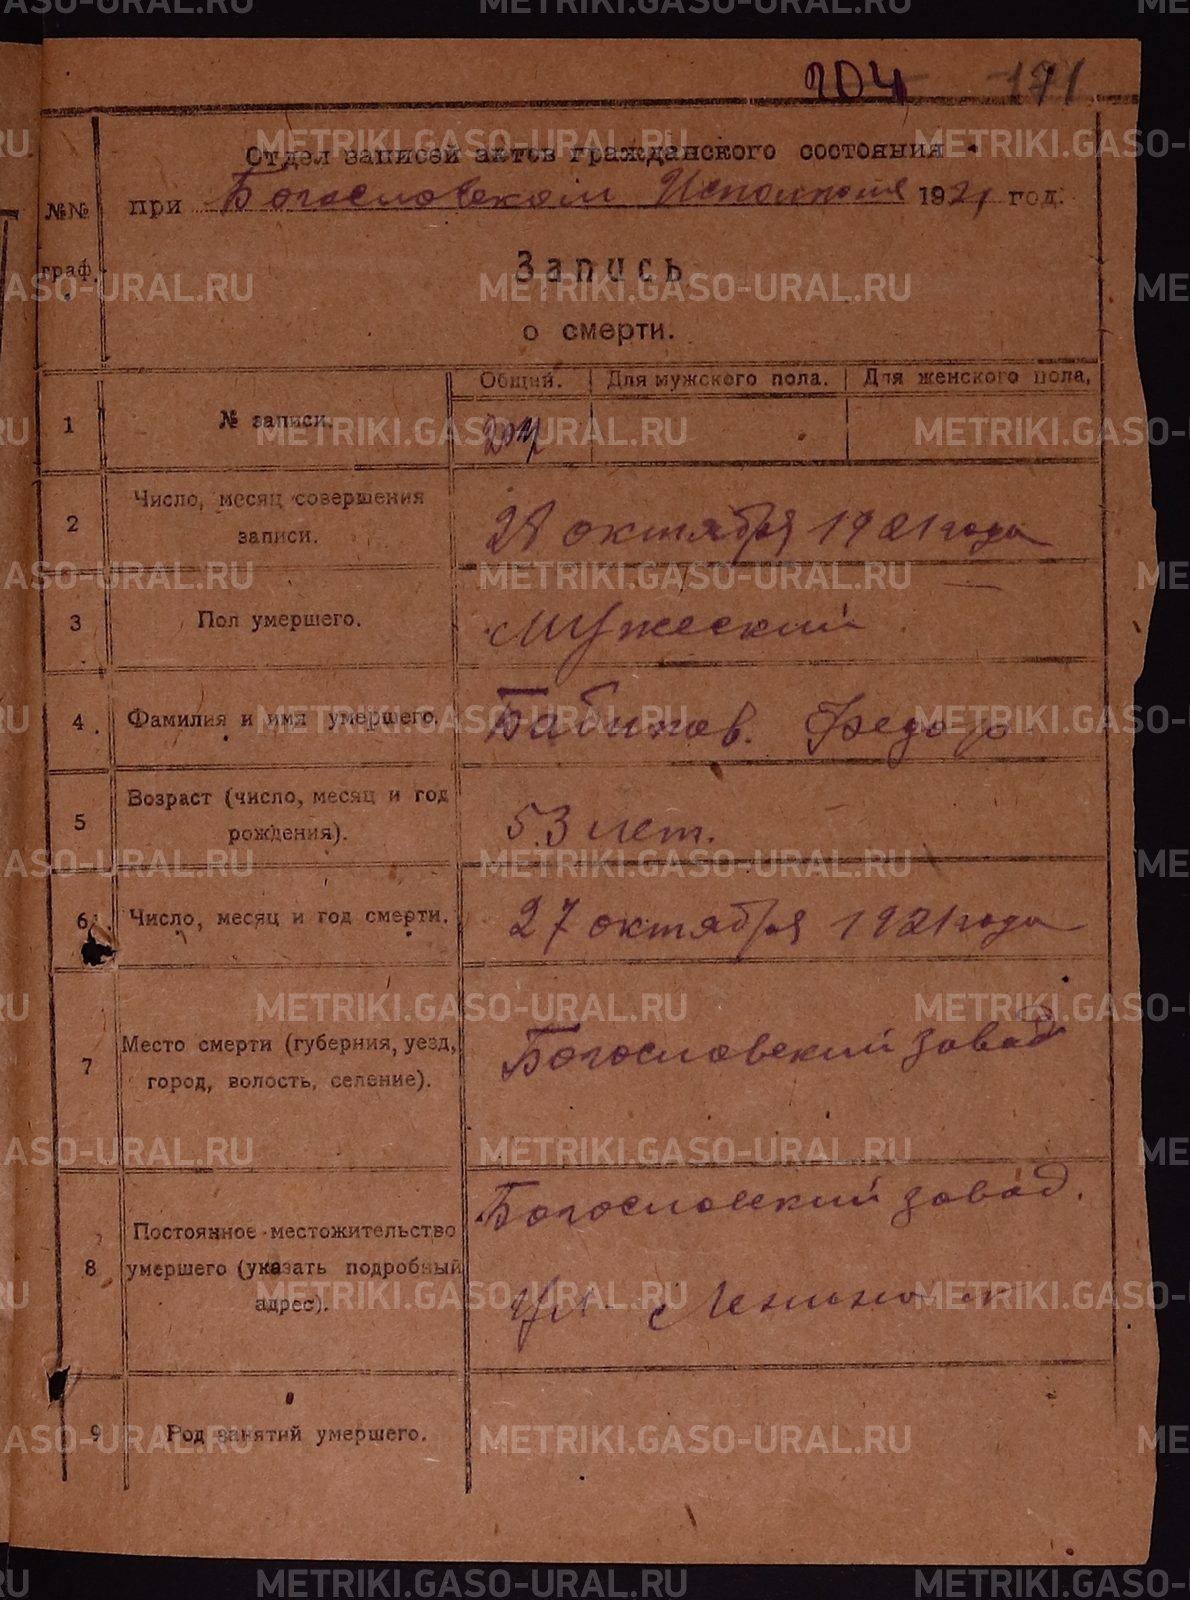 204 171
Отдел записей актов гражданского состояния
при Богословском 1921 год.
№№
граф.
Запись
о смерти.
Общий. Для мужского пола. Для женского пола,
1 № записи. 204
2 Число, месяц совершения
записи.
28 октября 1921 года
3 Пол умершего. Мужеский
4 Фамилия и имя умершего. Бабиков. Федор
5 Возраст (число, месяц и год
рождения).
53 лет.
6 Число, месяц и год смерти. 27 октября 1921 года
7 Место смерти (губерния, уезд,
город, волость, селение).
Богословский завод
8 Постоянное местожительство
умершего (указать подробный
адрес).
Богословский завод.
Ул.
9 Род занятий умершего.
METRIKI.GASO-URAL.RU